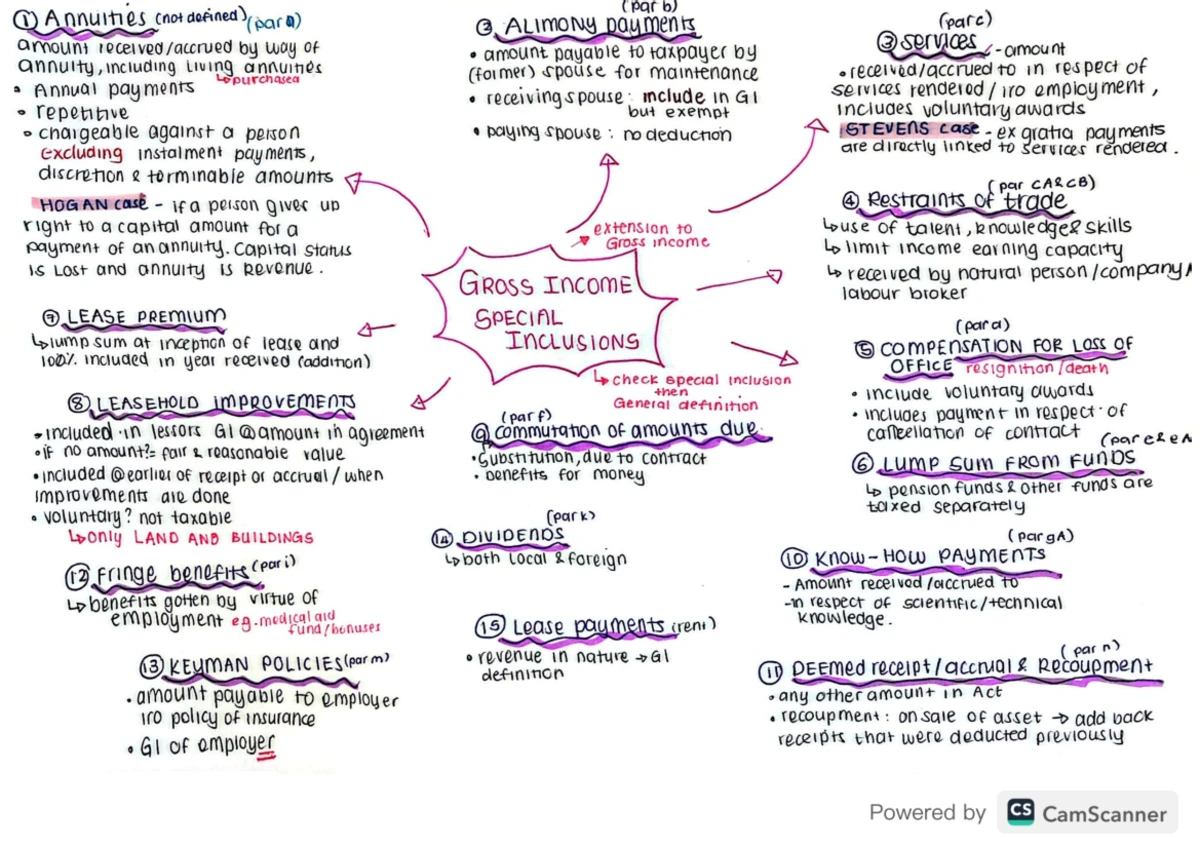 ① Annuities (not defined) (par a)
amount received/accrued by way of
annuity, including living annuities
↳purchased
• Annual payments
• repetitive
• chargeable against a person
excluding instalment payments,
discretion & terminable amounts
HOGAN case - if a person gives up
right to a capital amount for a
payment of an annuity. Capital status
is Lost and annuity is Revenue.
(par b)
② ALIMONY payments
• amount payable to taxpayer by
(former) spouse for maintenance
• receiving spouse: include in GI
but exempt
• paying spouse: no deduction
(par c)
③ services - amount
• received/accrued to in respect of
services rendered / iro employment,
includes voluntary awards
STEVENS case - ex gratia payments
are directly linked to services rendered.
(par CA&CB)
④ Restraints of trade
↳use of talent, knowledge & skills
↳ limit income earning capacity
↳ received by natural person/company/
labour broker
extension to
Gross income
GROSS INCOME
SPECIAL
INCLUSIONS
↳ check special inclusion
then
General definition
⑦ LEASE PREMIUM
↳lump sum at inception of lease and
100% included in year received (addition)
(par d)
⑤ COMPENSATION FOR LOSS OF
OFFICE resignition/death
• include voluntary awards
• includes payment in respect of
cancellation of contract
⑧ LEASEHOLD IMPROVEMENTS
• included in lessors GI @ amount in agreement
• if no amount?= fair & reasonable value
• included @ earlier of receipt or accrual / when
improvements are done
• voluntary? not taxable
↳only LAND AND BUILDINGS
(par f)
⑨ commutation of amounts due
• substitution, due to contract
• benefits for money
⑥ LUMP SUM FROM FUNDS
↳ pension funds & other funds are
taxed separately
(par k)
⑭ DIVIDENDS
↳both local & foreign
(par gA)
⑩ KNOW-HOW PAYMENTS
- Amount received/accrued to
-in respect of scientific/technical
knowledge.
⑫ Fringe benefits (par i)
↳ benefits gotten by virtue of
employment eg. medical aid
fund/bonuses
⑮ Lease payments (rent)
• revenue in nature → GI
definition
⑬ KEYMAN POLICIES (par m)
• amount payable to employer
iro policy of insurance
• GI of employer
(par n)
⑪ DEEMED receipt/accrual & Recoupment
• any other amount in Act
• recoupment: on sale of asset → add back
receipts that were deducted previously
Powered by CS CamScanner